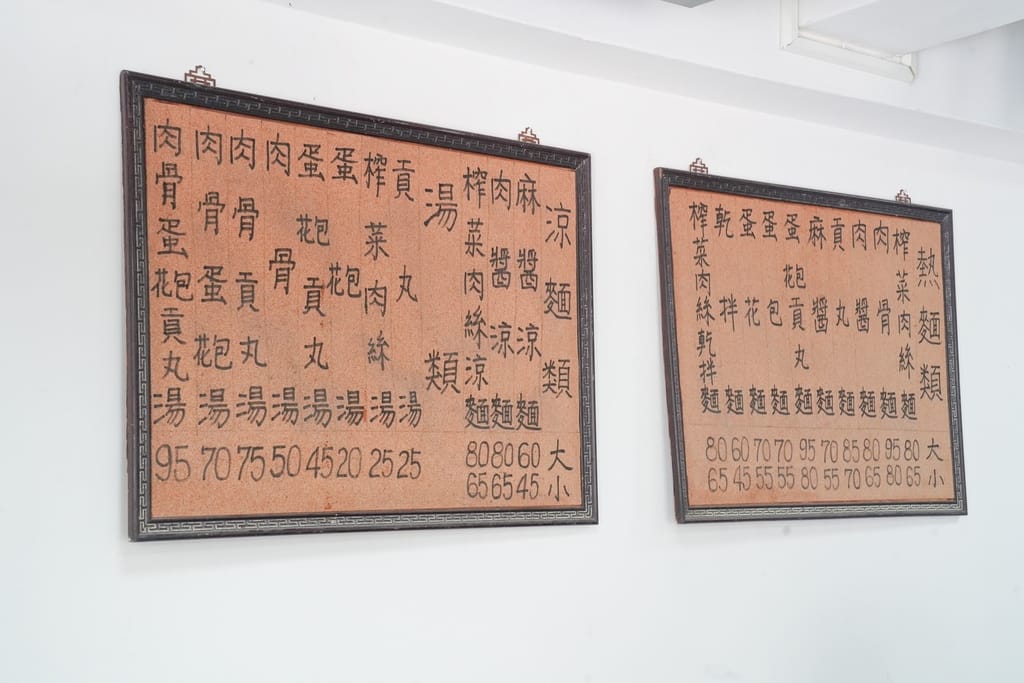 熱麵類 大 小
榨菜肉絲麵 80 65
肉骨麵 95 80
肉醬麵 80 65
貢丸麵 85 70
麻醬麵 70 55
蛋花包貢丸麵 95 80
蛋包麵 70 55
蛋花麵 70 55
乾拌麵 60 45
榨菜肉絲乾拌麵 80 65
涼麵類 大 小
麻醬涼麵 60 45
肉醬涼麵 80 65
榨菜肉絲涼麵 80 65
湯類
貢丸湯 25
榨菜肉絲湯 25
蛋花包湯 20
蛋花包貢丸湯 45
肉骨湯 50
肉骨貢丸湯 75
肉骨蛋花包湯 70
肉骨蛋花包貢丸湯 95